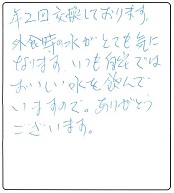 年2回交換しております。
外食時の水がとても気に
なります いつも自宅では
おいしい水を飲んで
いますので。ありがとう
ございます。